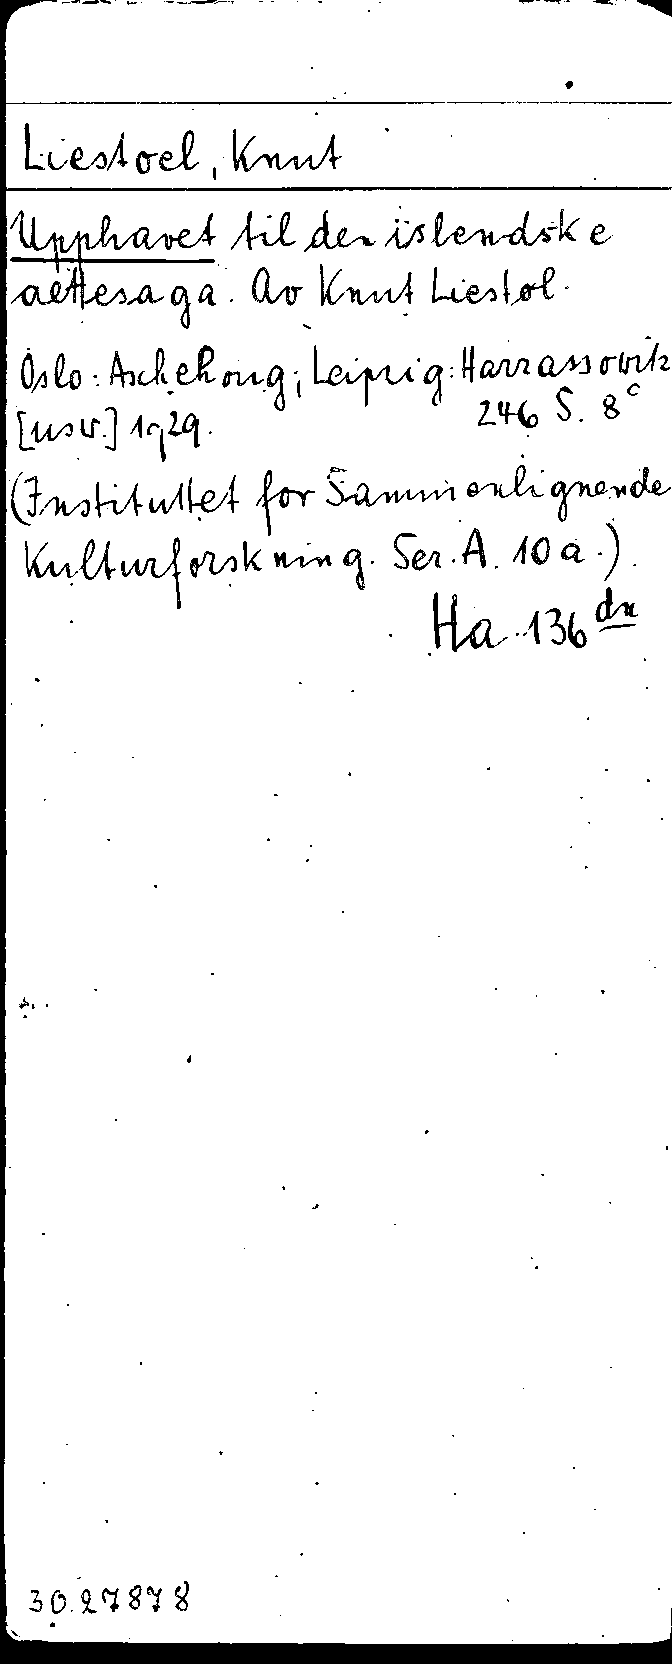 Liestoel, Knut
Upphavet til den islendske
aettesaga. Av Knut Liestøl.
Oslo: Aschehoug; Leipzig: Harrassowitz
[usw.] 1929. 246 S. 8°
(Instituttet for Sammenlignende
Kulturforskning. Ser. A. 10 a.)
Ha 136 dn
30.27878